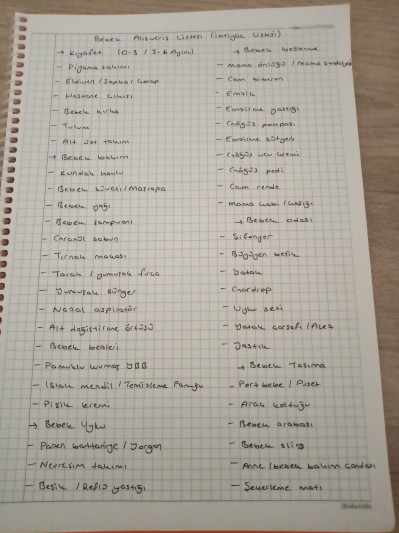 Bebek Alışveriş Listesi (İhtiyaç Listesi)
→ Kıyafet (0-3 / 3-6 Aylık)
- Pijama takımı
- Eldiven / Şapka / Çorap
- Hastane çıkışı
- Bebek hırka
- Tulum
- Alt üst takım
→ Bebek bakım
- Kundak havlu
- Bebek küveti / Maşrapa
- Bebek yağı
- Bebek şampuanı
- Granül sabun
- Tırnak makası
- Tarak / yumuşak fırça
- Yumuşak sünger
- Nazal aspiratör
- Alt değiştirme örtüsü
- Bebek bezleri
- Pamuklu kumaş
- Islak mendil / Temizleme Pamuğu
- Pişik kremi
→ Bebek Uyku
- Pazen battaniye / Yorgan
- Nevresim takımı
- Beşik / Reflü yastığı
→ Bebek beslenme
- Mama önlüğü / Mama sandalyesi
- Cam biberon
- Emzik
- Emzirme yastığı
- Göğüs pompası
- Emzirme sütyeni
- Göğüs ucu kremi
- Göğüs pedi
- Cam rende
- Mama kabı / kaşığı
→ Bebek odası
- Şifonyer
- Büyüyen beşik
- Yatak
- Gardrop
- Uyku seti
- Yatak çarşafı / Alez
- Yastık
→ Bebek Taşıma
- Portbebe / Puset
- Araç koltuğu
- Bebek arabası
- Bebek sling
- Anne / bebek bakım çantası
- Sekerleme matı